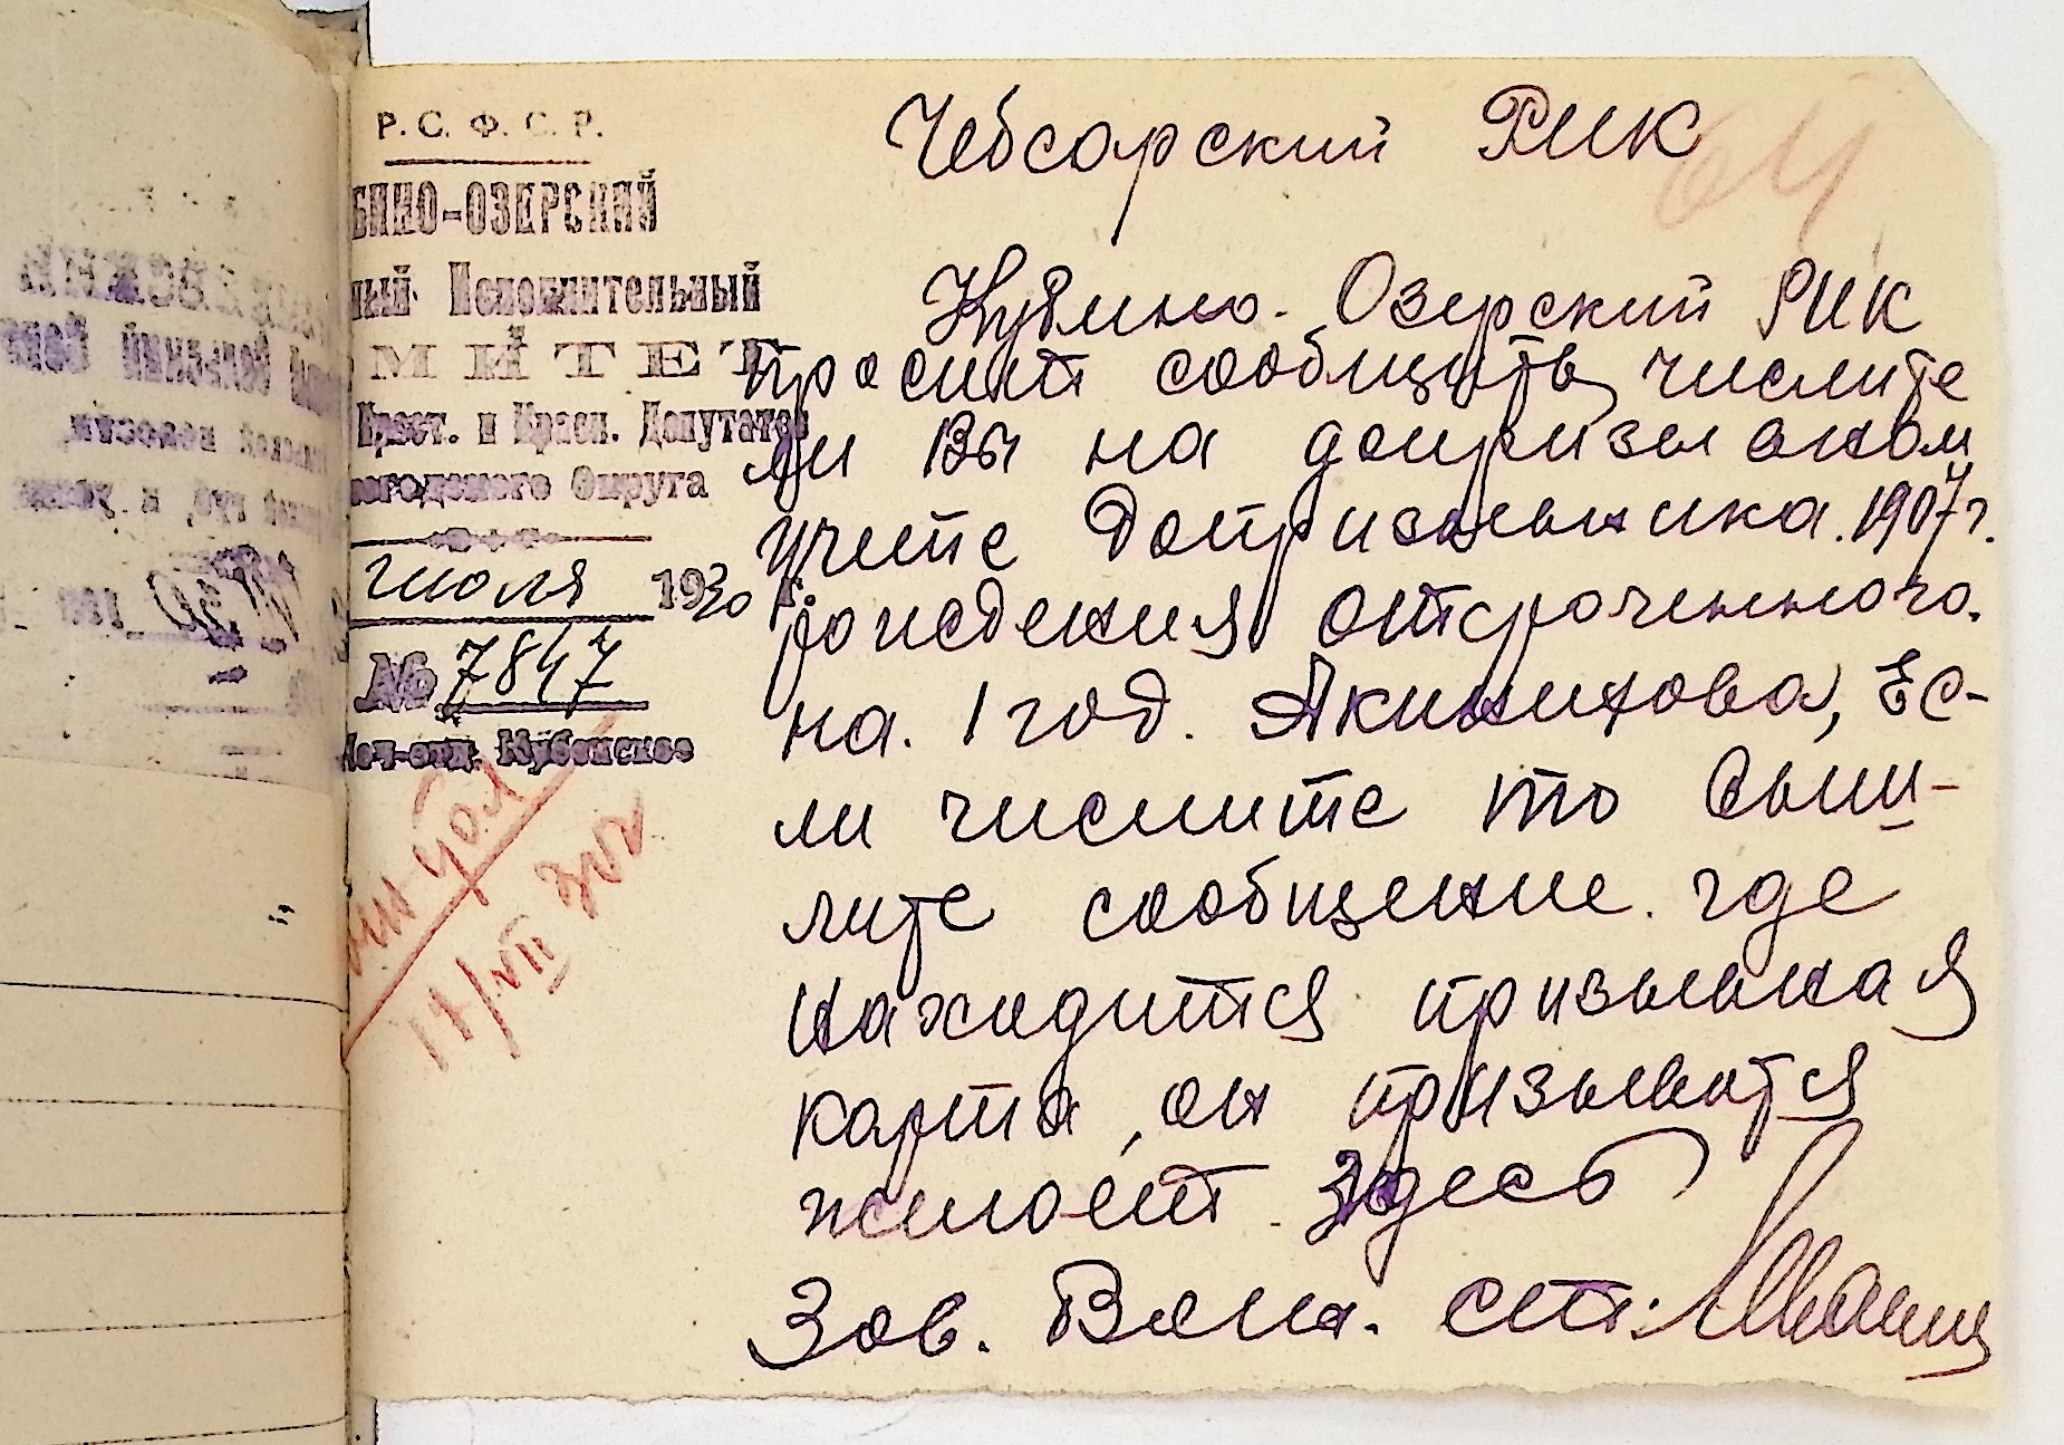 Р. С. Ф. С. Р.
БИНО-ОЗЕРСКИЙ
ный Исполнительный
МИТЕТ
Крест. и Красн. Депутатов
логодского Округа
июля 1930 г.
№ 7847
Поч-отд. Кубенское
11/VII
64
Чебсарский РИК
Кубино-Озерский РИК
просит сообщить, числите
ли Вы на допризывном
учете допризывника 1907 г.
рождения отсроченного
на 1 год. Якинихова, Ес-
ли числите то выш-
лите сообщение где
находится призывная
карта, он призыватся
жилоет здесь
Зав. Воен. ст.